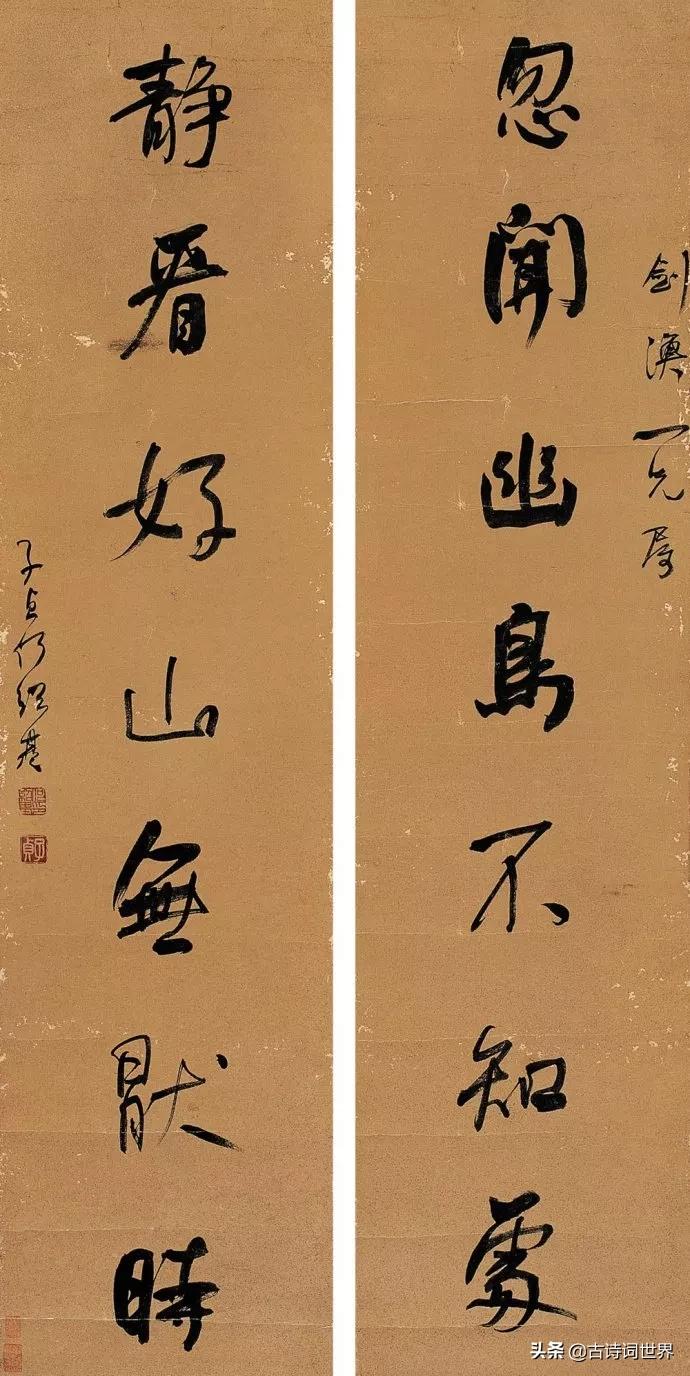 劍潭一兄屬
忽聞幽鳥不知處
靜看好山無猒時
子貞何紹基
子貞
头条 @古诗词世界